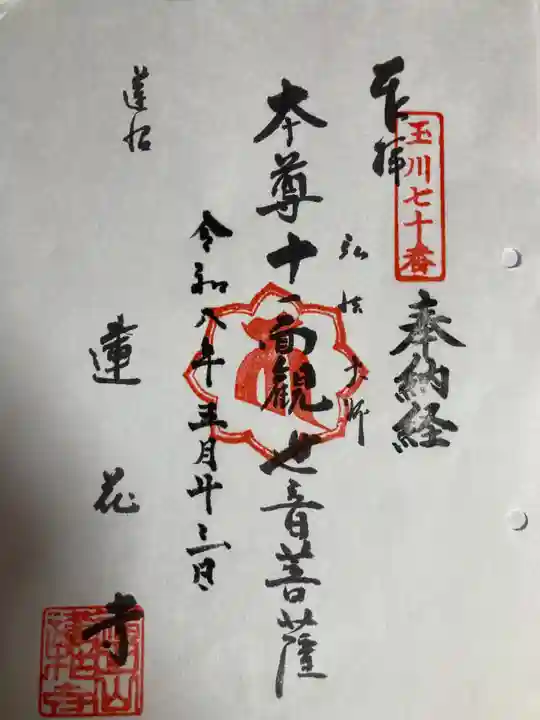 奉拝
玉川七十番
奉納経
弘法大師
本尊十一面観世音菩薩
令和八年五月廿三日
蓮花寺